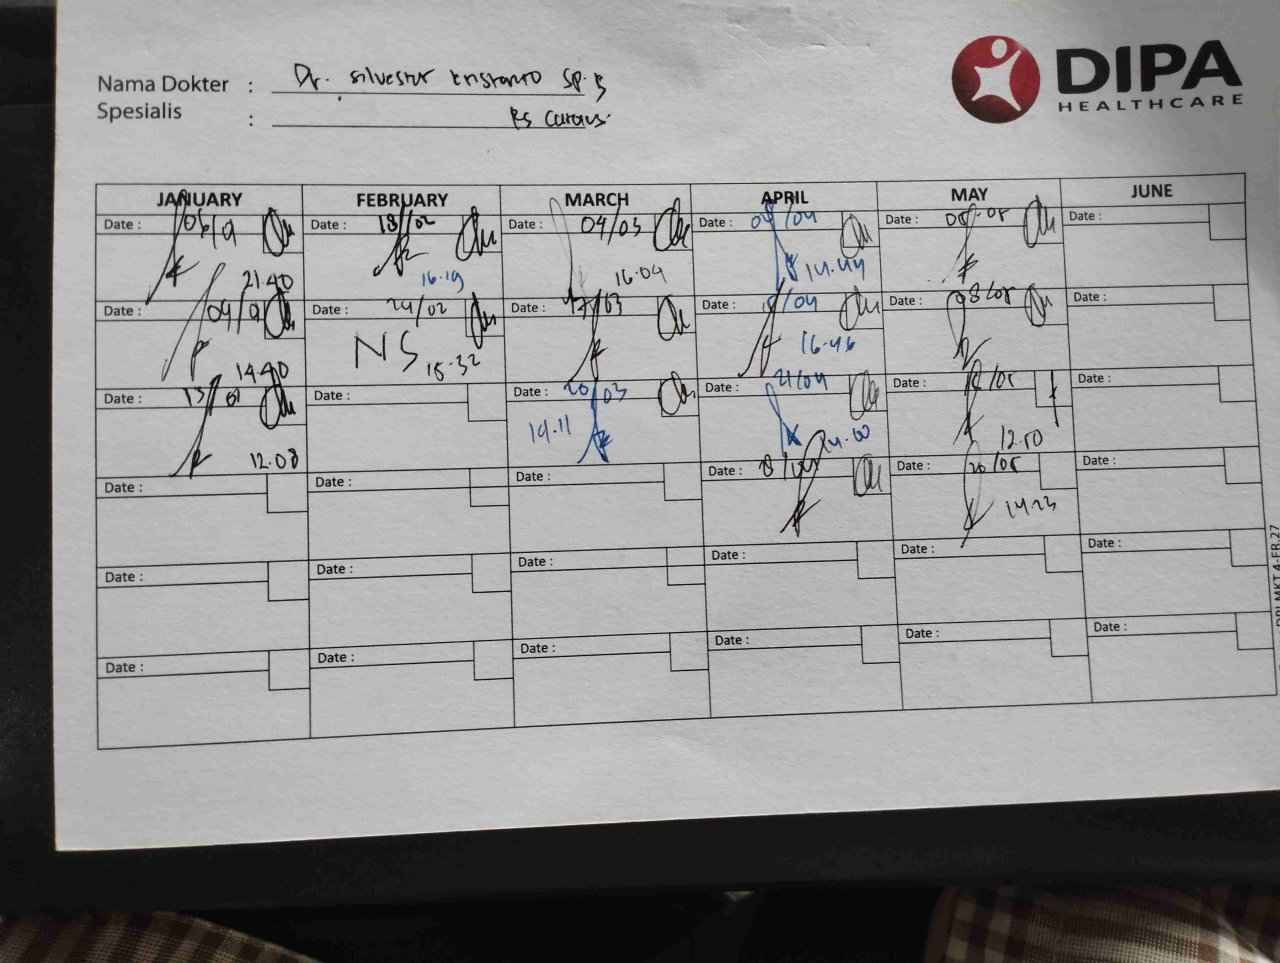 DIPA
HEALTHCARE
Nama Dokter : Dr. silvester tristanto Sp. B
Spesialis : RS Carolus
JANUARY FEBRUARY MARCH APRIL MAY JUNE
Date : Date : 18/02 Date : 04/03 Date : Date : Date :
21.40 16.19 16.04 14.44
Date : Date : 24/02 Date : 17/03 Date : Date : 08/05 Date :
14.40 NS 15.32 16.46
Date : 13/01 Date : Date : 20/03 Date : 21/04 Date : Date :
12.08 19.11 12.50
Date : Date : Date : Date : Date : 20/05 Date :
14.23
Date : Date : Date : Date : Date : Date :
Date : Date : Date : Date : Date : Date :